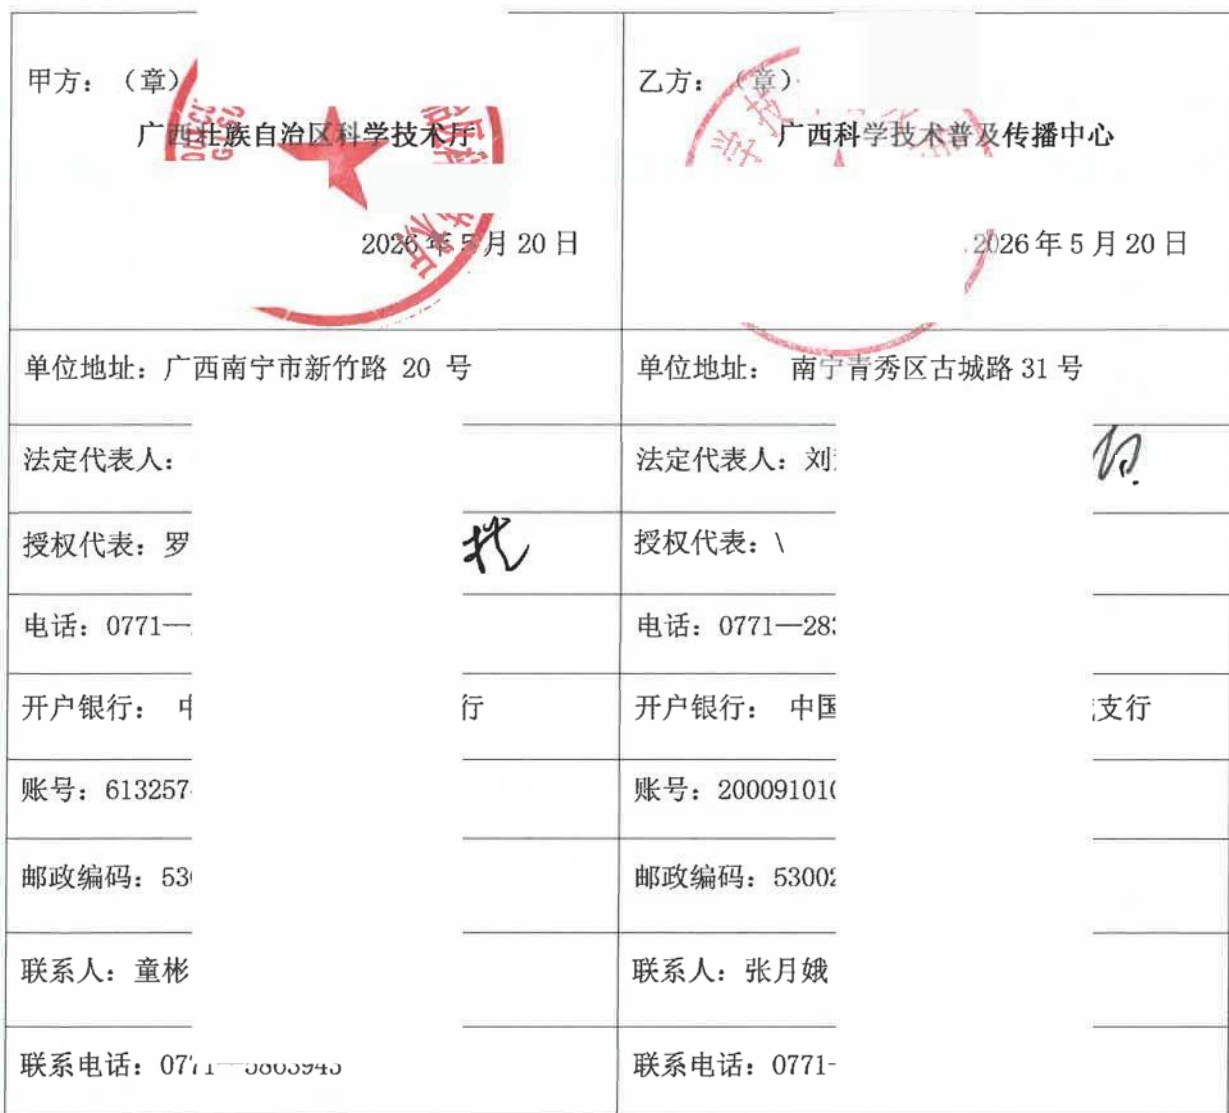 甲方：（章）
广西壮族自治区科学技术厅
2026年5月20日
乙方：（章）
广西科学技术普及传播中心
2026年5月20日
单位地址：广西南宁市新竹路 20 号
单位地址： 南宁青秀区古城路31号
法定代表人：
法定代表人：刘
授权代表：罗
授权代表：\
电话：0771—
电话：0771—28
开户银行： 行
开户银行： 中国 支行
账号：613257
账号：20009101
邮政编码：53
邮政编码：5300
联系人：童彬
联系人：张月娥
联系电话：0771—5863943
联系电话：0771-